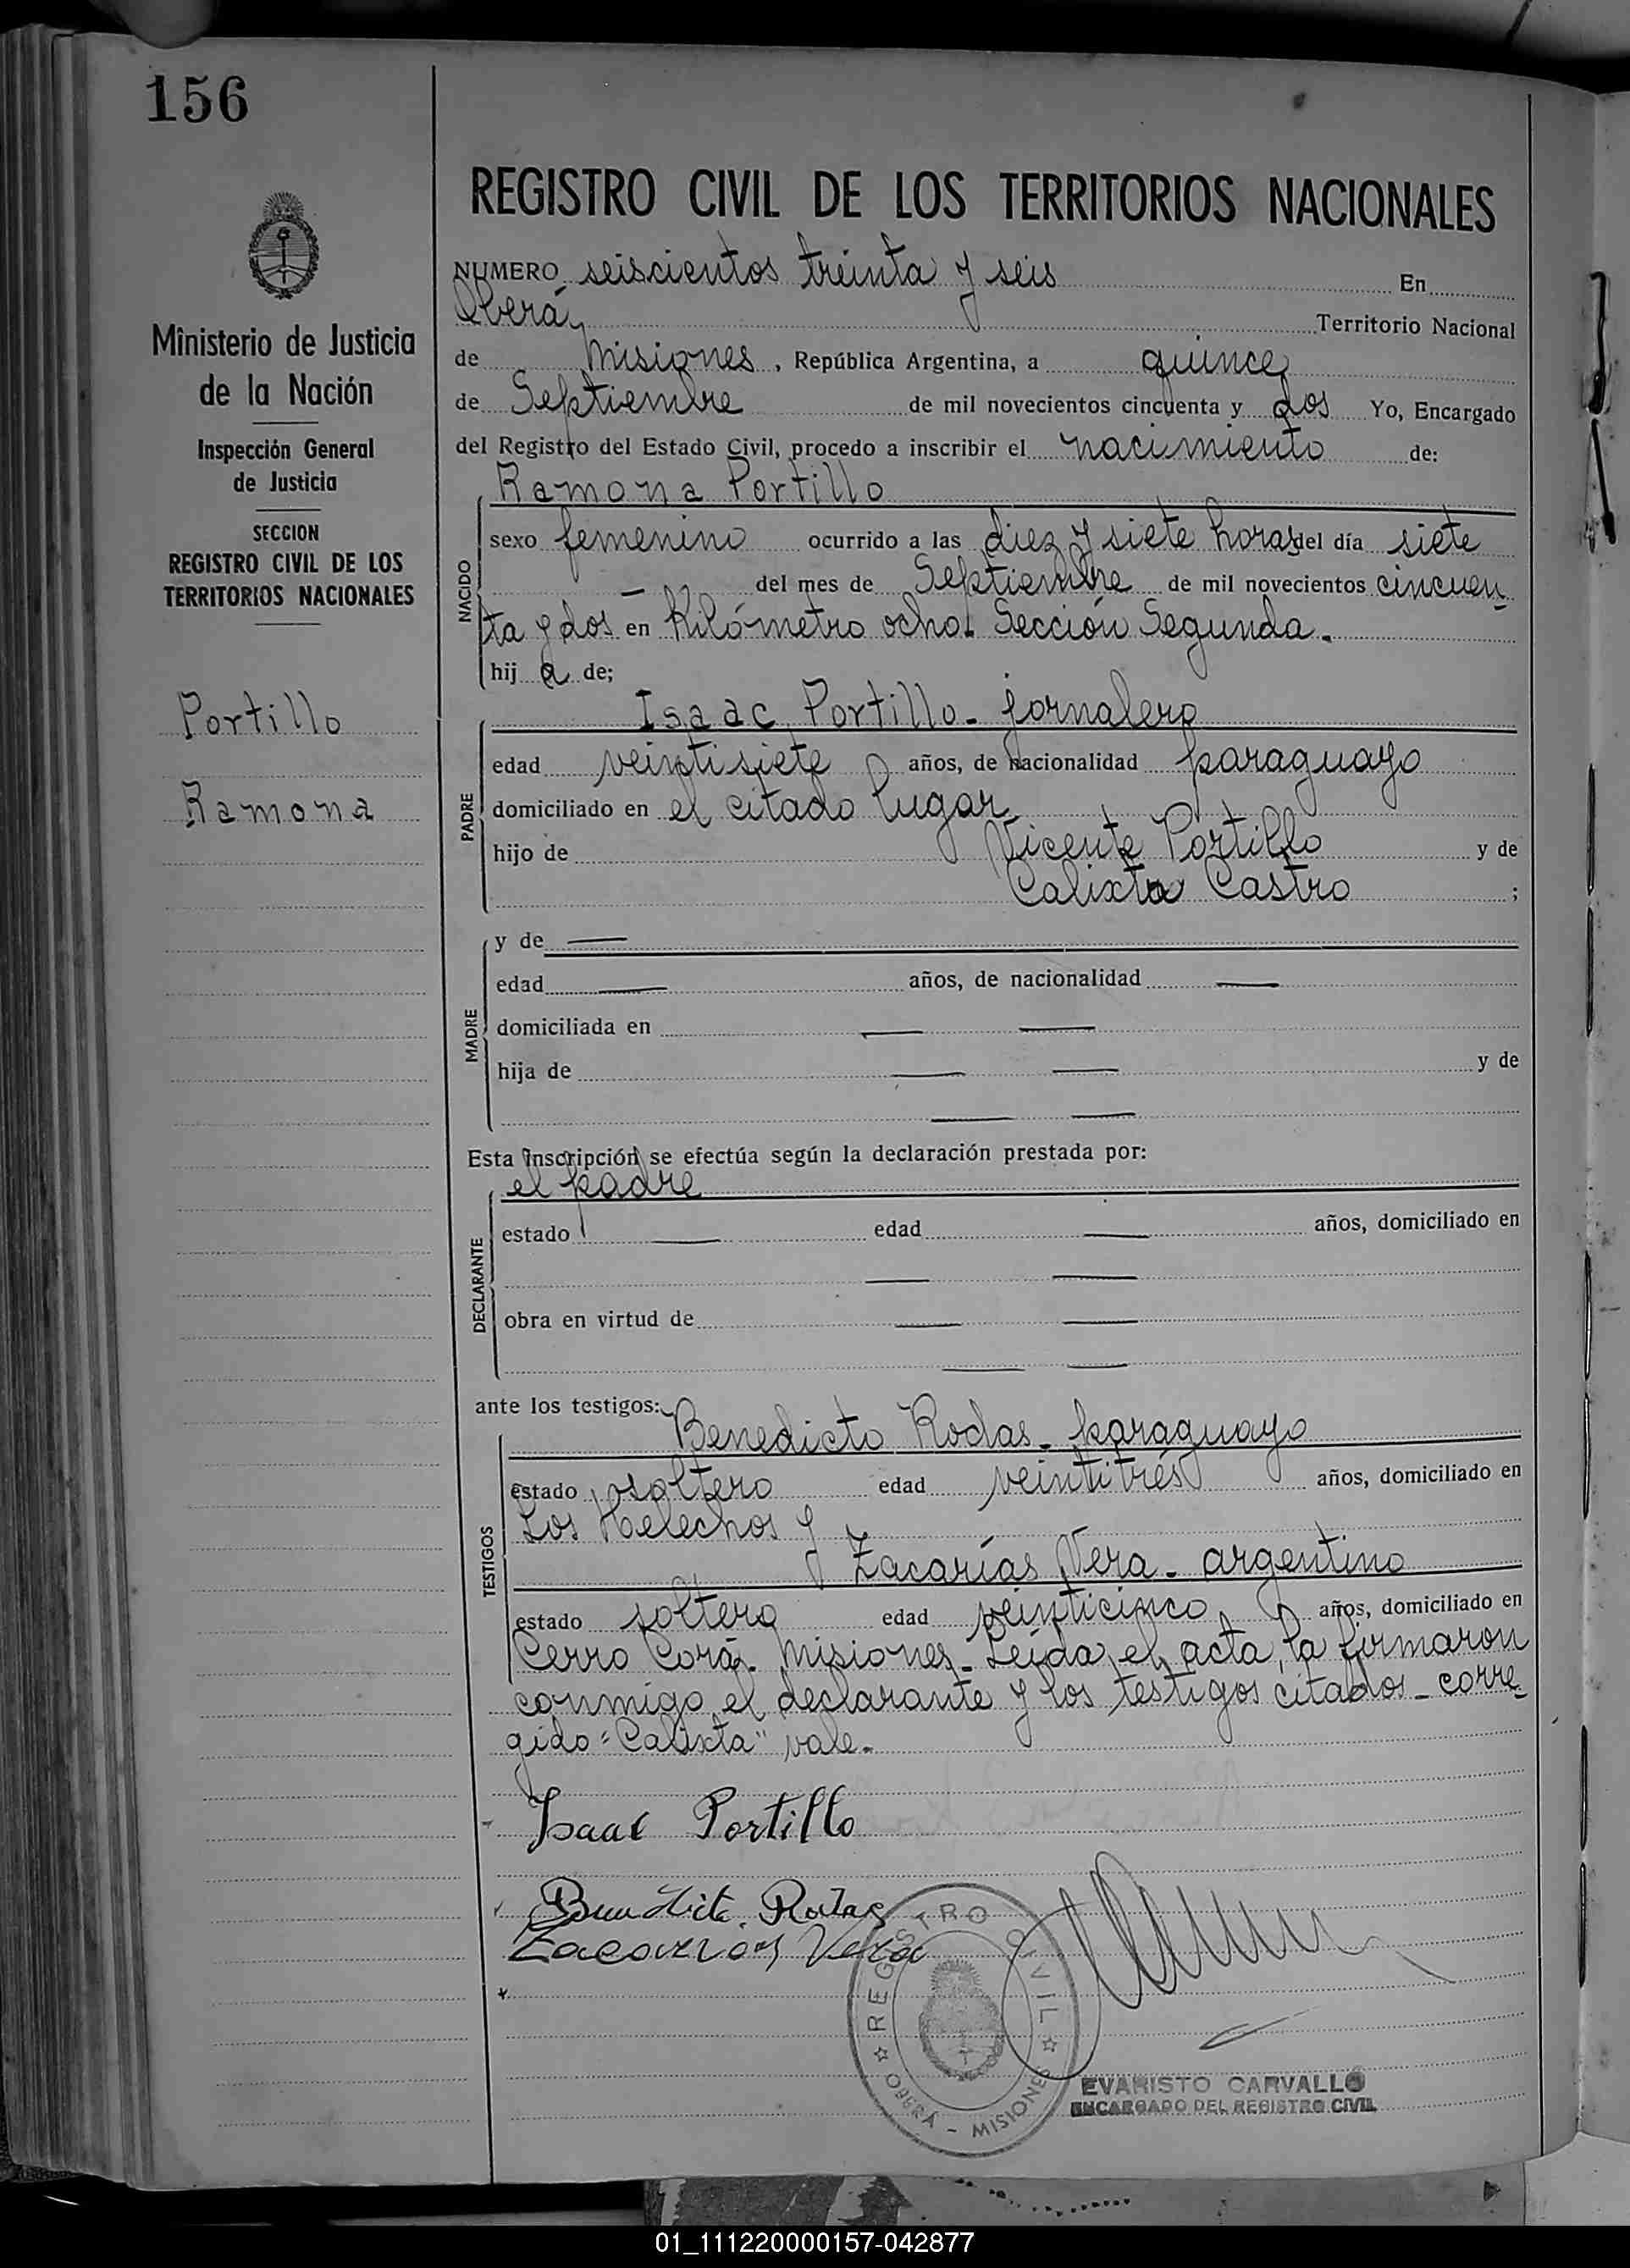 156
REGISTRO CIVIL DE LOS TERRITORIOS NACIONALES
Ministerio de Justicia
de la Nación
Inspección General
de Justicia
SECCION
REGISTRO CIVIL DE LOS
TERRITORIOS NACIONALES
Portillo
Ramona
NUMERO seiscientos treinta y seis En
Oberá, Territorio Nacional
de Misiones, República Argentina, a quince
de Septiembre de mil novecientos cincuenta y dos Yo, Encargado
del Registro del Estado Civil, procedo a inscribir el nacimiento de:
Ramona Portillo
NACIDO
sexo femenino ocurrido a las diez y siete horas del día siete
— del mes de Septiembre de mil novecientos cincuen-
ta y dos en Kilómetro ocho. Sección Segunda.
hij a de;
Isaac Portillo - jornalero
PADRE
edad veintisiete años, de nacionalidad paraguayo
domiciliado en el citado lugar
hijo de Vicente Portillo y de
Calixta Castro ;
MADRE
y de —
edad — años, de nacionalidad —
domiciliada en — —
hija de — — y de
— —
Esta inscripción se efectúa según la declaración prestada por:
el padre
DECLARANTE
estado — edad — años, domiciliado en
— —
obra en virtud de — —
— —
ante los testigos:
Benedicto Rodas - paraguayo
TESTIGOS
estado soltero edad veintitrés años, domiciliado en
Los Helechos y
Zacarías Vera - argentino
estado soltero edad veinticinco años, domiciliado en
Cerro Corá. Misiones - Leída el acta, la firmaron
conmigo el declarante y los testigos citados - corre-
gido "Calixta" vale.
Isaac Portillo
Benedicto Rodas
Zacarias Vera
REGISTRO CIVIL
OBERÁ - MISIONES
EVARISTO CARVALLO
ENCARGADO DEL REGISTRO CIVIL
01_111220000157-042877